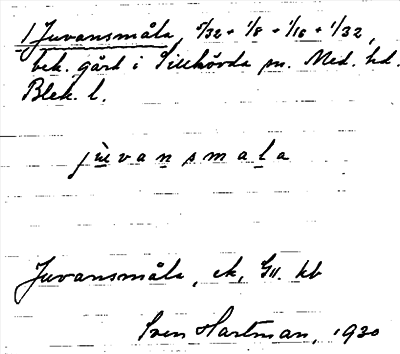 1 Juvansmåla, 5/32 + 1/8 + 1/16 + 1/32,
bek. gård i Tillhövda sn. Med. hd.
Blek. l.
juvansmala
Juvansmåla, ek, Gu. kb
Sven Hartman, 1930